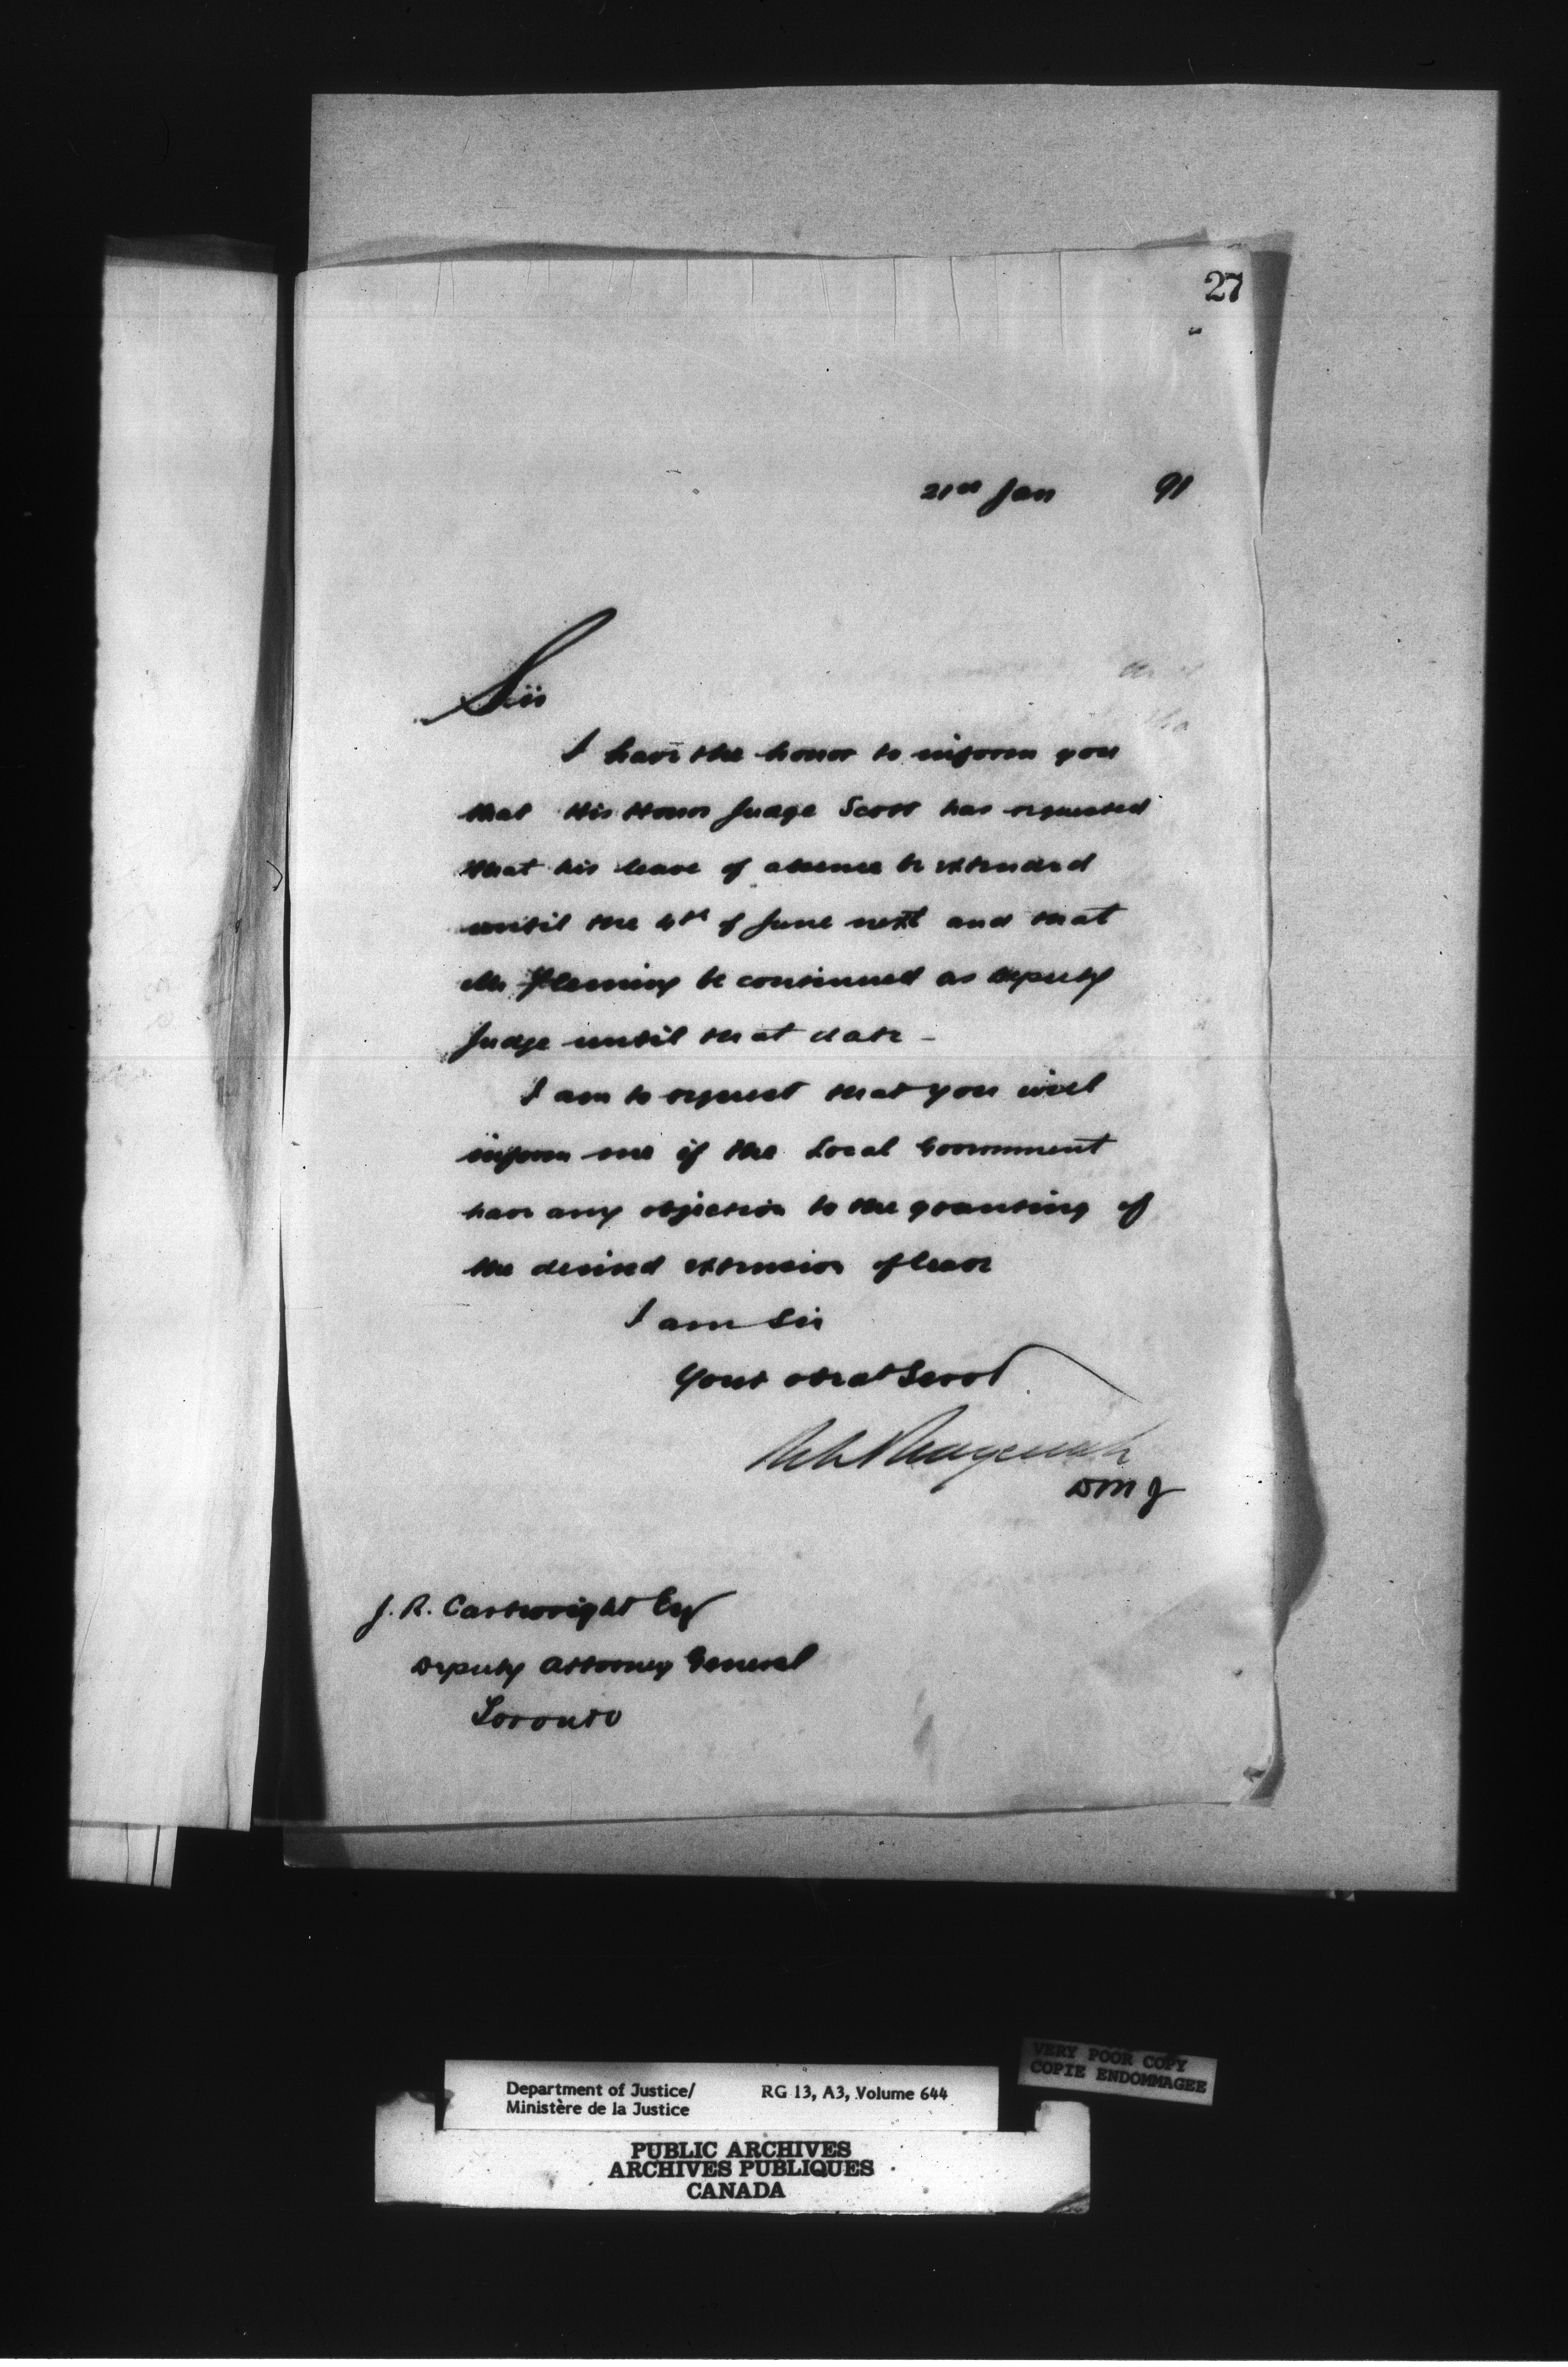 27
21st Jan 91
Sir
I have the honor to inform you
that His Honor Judge Scott has requested
that his leave of absence be extended
until the 4th of June next and that
Mr Fleming be continued as deputy
Judge until that date -
I am to request that you will
inform me if the Local Government
have any objection to the granting of
the desired extension of leave
I am Sir
Your obedt Servt
DMJ
J. R. Cartwright Esq
Deputy Attorney General
Toronto
Department of Justice/ RG 13, A3, Volume 644
Ministère de la Justice
VERY POOR COPY
COPIE ENDOMMAGEE
PUBLIC ARCHIVES
ARCHIVES PUBLIQUES
CANADA